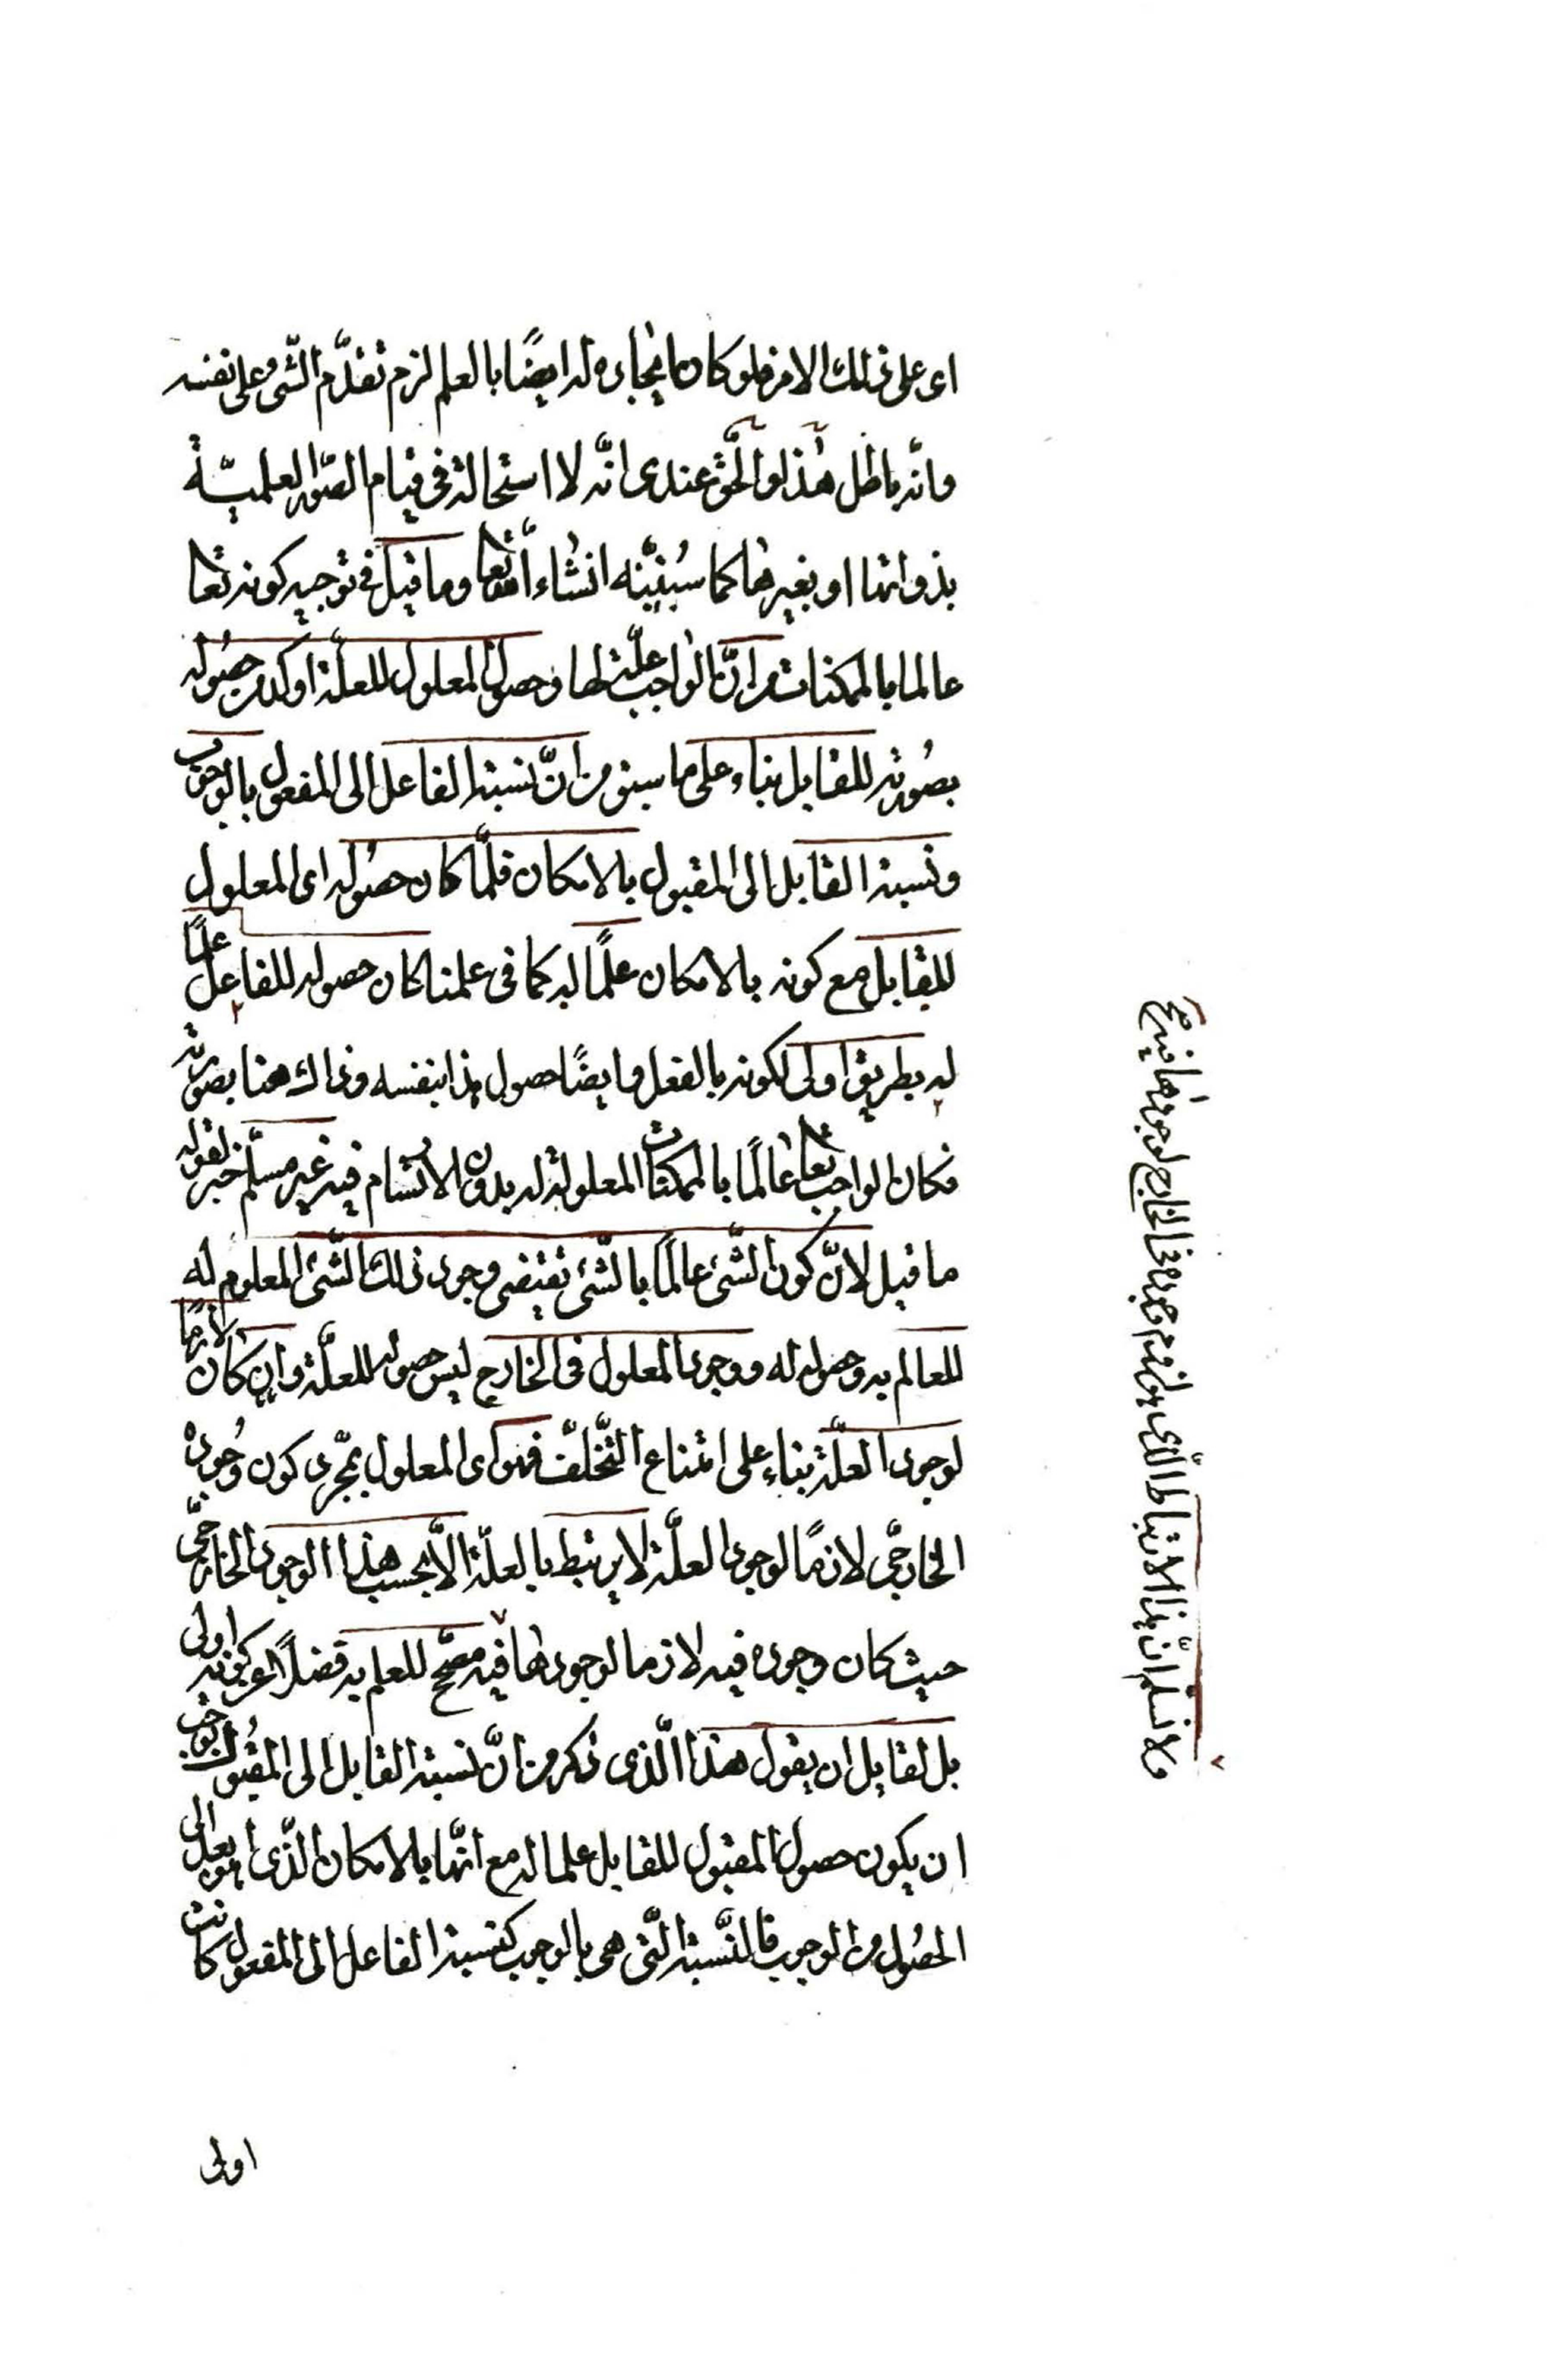 اى على ذلك الامر فلو كان ايجاده له ايضًا بالعلم لزم تقدّم الشّىء على نفسه
وانّه باطل هذا والحقّ عندى انّه لا استحالة فى قيام الصّور العلميّة
بذواتها او بغيرها كما سنبيّنه انشاء الله تعا وما قيل فى توجيه كونه تعا
عالما بالممكنات من انّ الواجب علّة لها وحصول المعلول للعلّة اوكد من حصوله
بصورته للقابل بناء على ما سبق من انّ نسبة الفاعل الى المفعول بالوجوب
ونسبة القابل الى المقبول بالامكان فلمّا كان حصوله اى المعلول
للقابل مع كونه بالامكان علمًا له كما فى علمنا كان حصوله للفاعل علمًا
له بطريق اولى لكونه بالفعل وايضًا حصول هذا بنفسه وذاك هنا بصورته
فكان الواجب تعا عالمًا بالممكنات المعلولة له بدون الارتسام فيه غير مسلّم خبر لقوله
ما قيل لانّ كون الشّىء عالمًا بالشّىء تقتضى وجود ذلك الشّىء المعلوم له
للعالم به وحصوله له ووجود المعلول فى الخارج ليس حصوله للعلّة وان كان لازمًا
لوجود العلّة بناء على امتناع التّخلّف فهو اى المعلول بمجرّد كون وجوده
الخارجىّ لازمًا لوجود العلّة لا يرتبط بالعلّة الاّ بحسب هذا الوجود الخارجىّ
حيث كان وجوده فيه لازما لوجودها فيه مصحّح للعلم به فضلاً عن كونه اولى
بل لقايل ان يقول هذا الّذى ذكر من انّ نسبة القابل الى المقبول يوجب
ان يكون حصول المقبول للقابل علما له مع انّها بالامكان الّذى هو ابعد الى
الحصول من الوجوب فالنّسبة الّتى هى بالوجوب كنسبة الفاعل الى المفعول كانت
اولى
ولا نسلم انّ هذا الارتباط الّذى الخارج لوجودها فيه